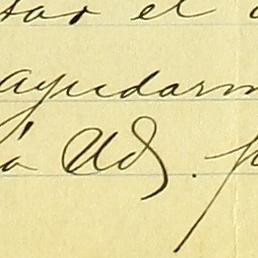 tar el
ayudarm
á Ud. p